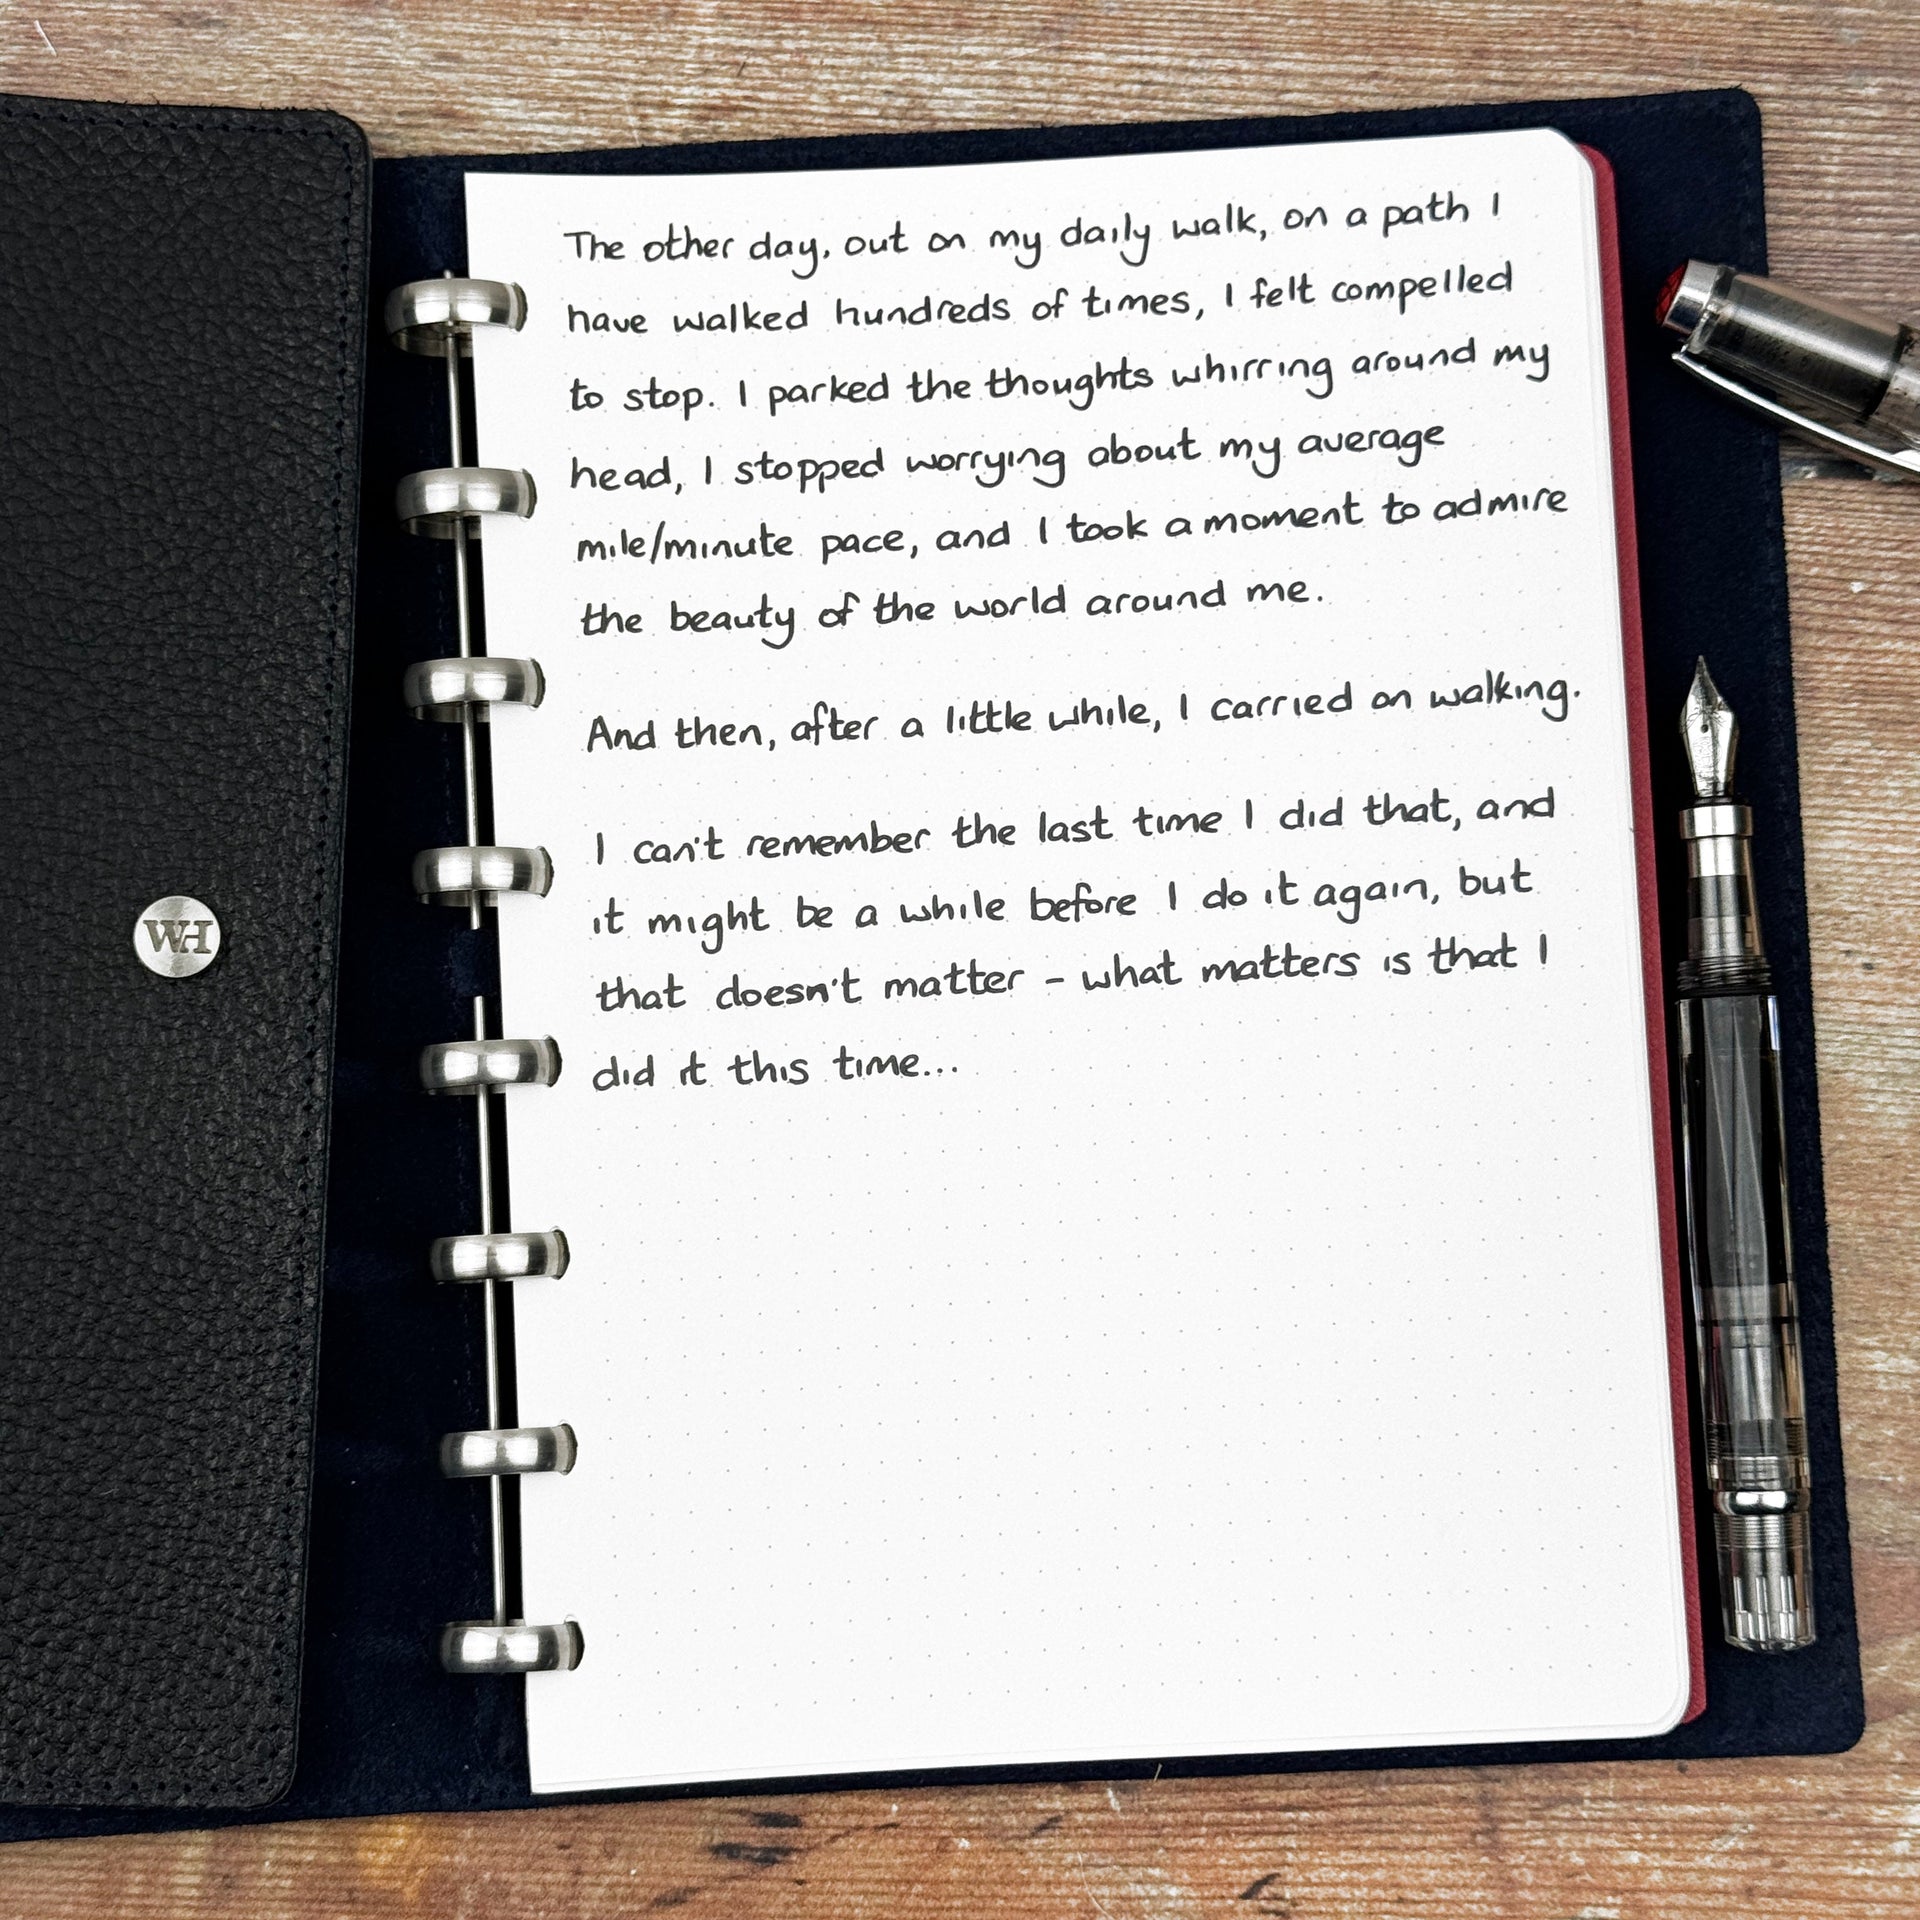 The other day, out on my daily walk, on a path I
have walked hundreds of times, I felt compelled
to stop. I parked the thoughts whirring around my
head, I stopped worrying about my average
mile/minute pace, and I took a moment to admire
the beauty of the world around me.
And then, after a little while, I carried on walking.
I can't remember the last time I did that, and
it might be a while before I do it again, but
that doesn't matter - what matters is that I
did it this time...
WH